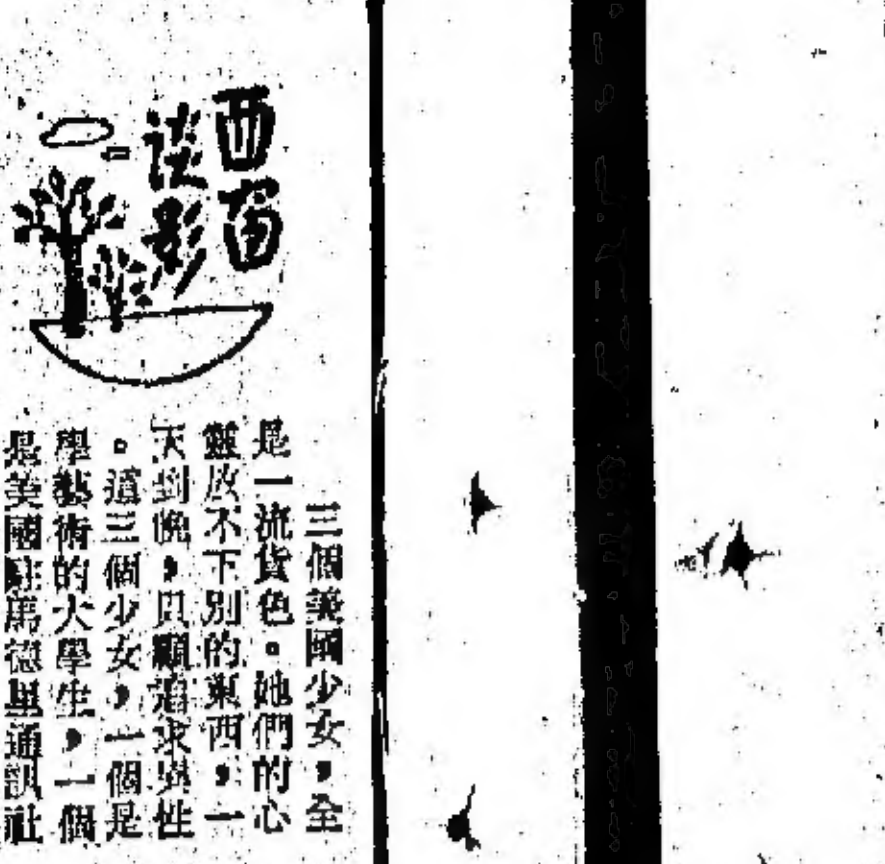 西窗
談影
三個美國少女，全
是一流貨色。她們的心
靈放不下別的東西，一
天到晚，只顧追求異性
。這三個少女，一個是
學藝術的大學生，一個
是美國駐馬德里通訊社